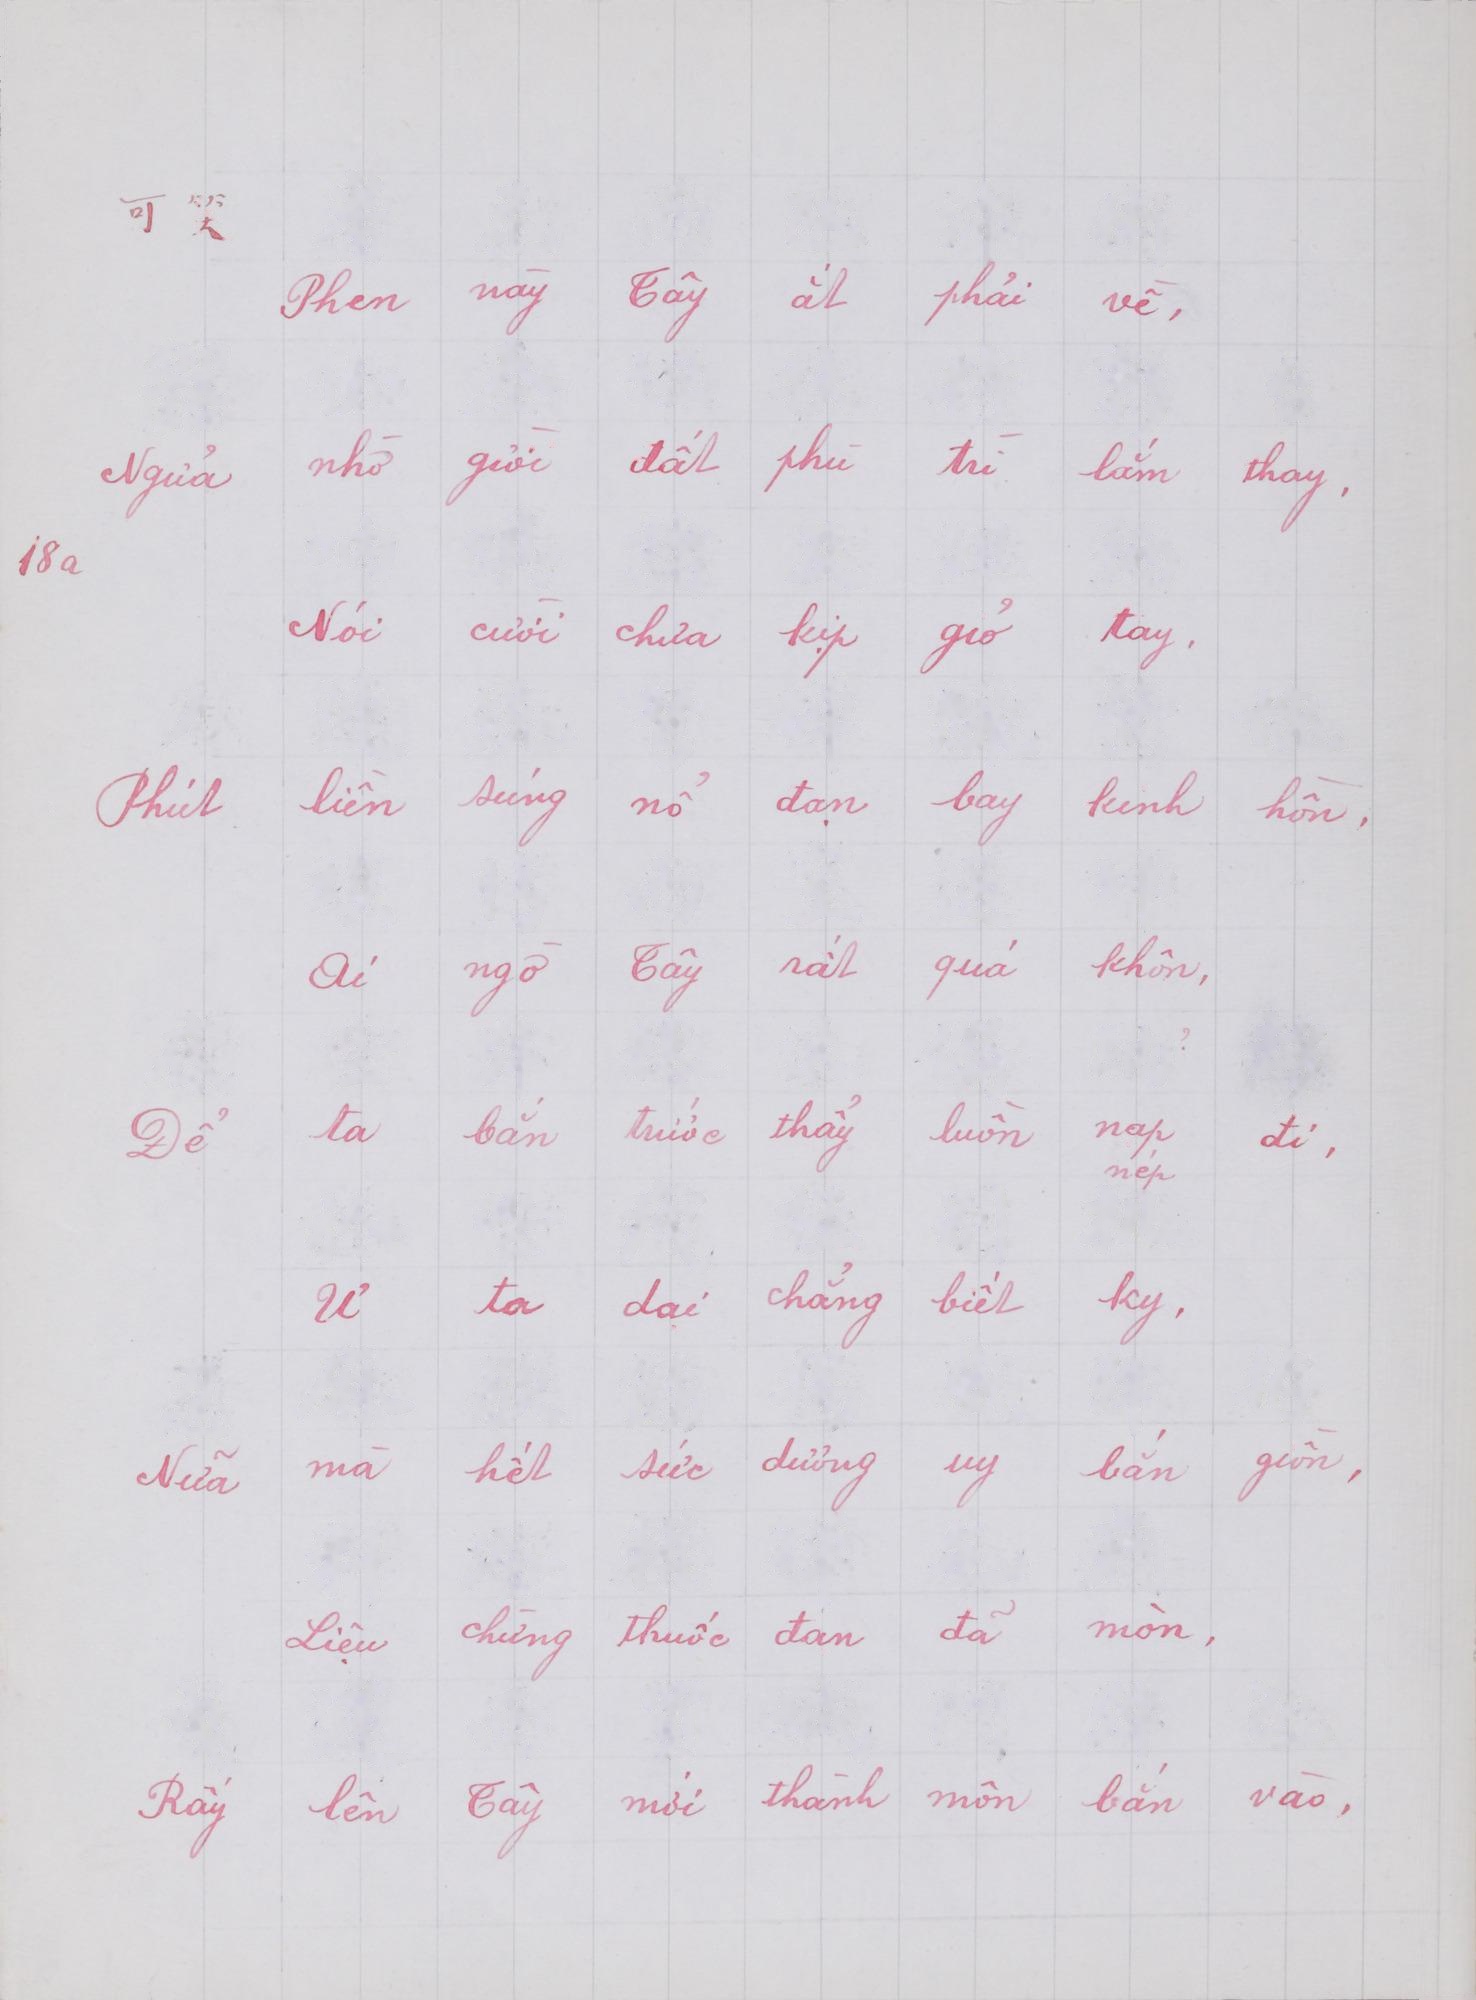 可笑
Phen này Tây ắt phải về,
Ngửa nhờ giời đất phù trì lắm thay,
18a
Nói cười chưa kịp giở tay,
Phút liền súng nổ đạn bay kinh hồn,
Ai ngờ Tây rất quá khôn,
?
Để ta bắn trước thẩy luồn nạp đi,
nép
Ư ta dại chẳng biết kỳ,
Nữa mà hết sức dương uy bắn giồn,
Liệu chừng thuốc đạn đã mòn,
Rầy lên Tây mới thành môn bắn vào,